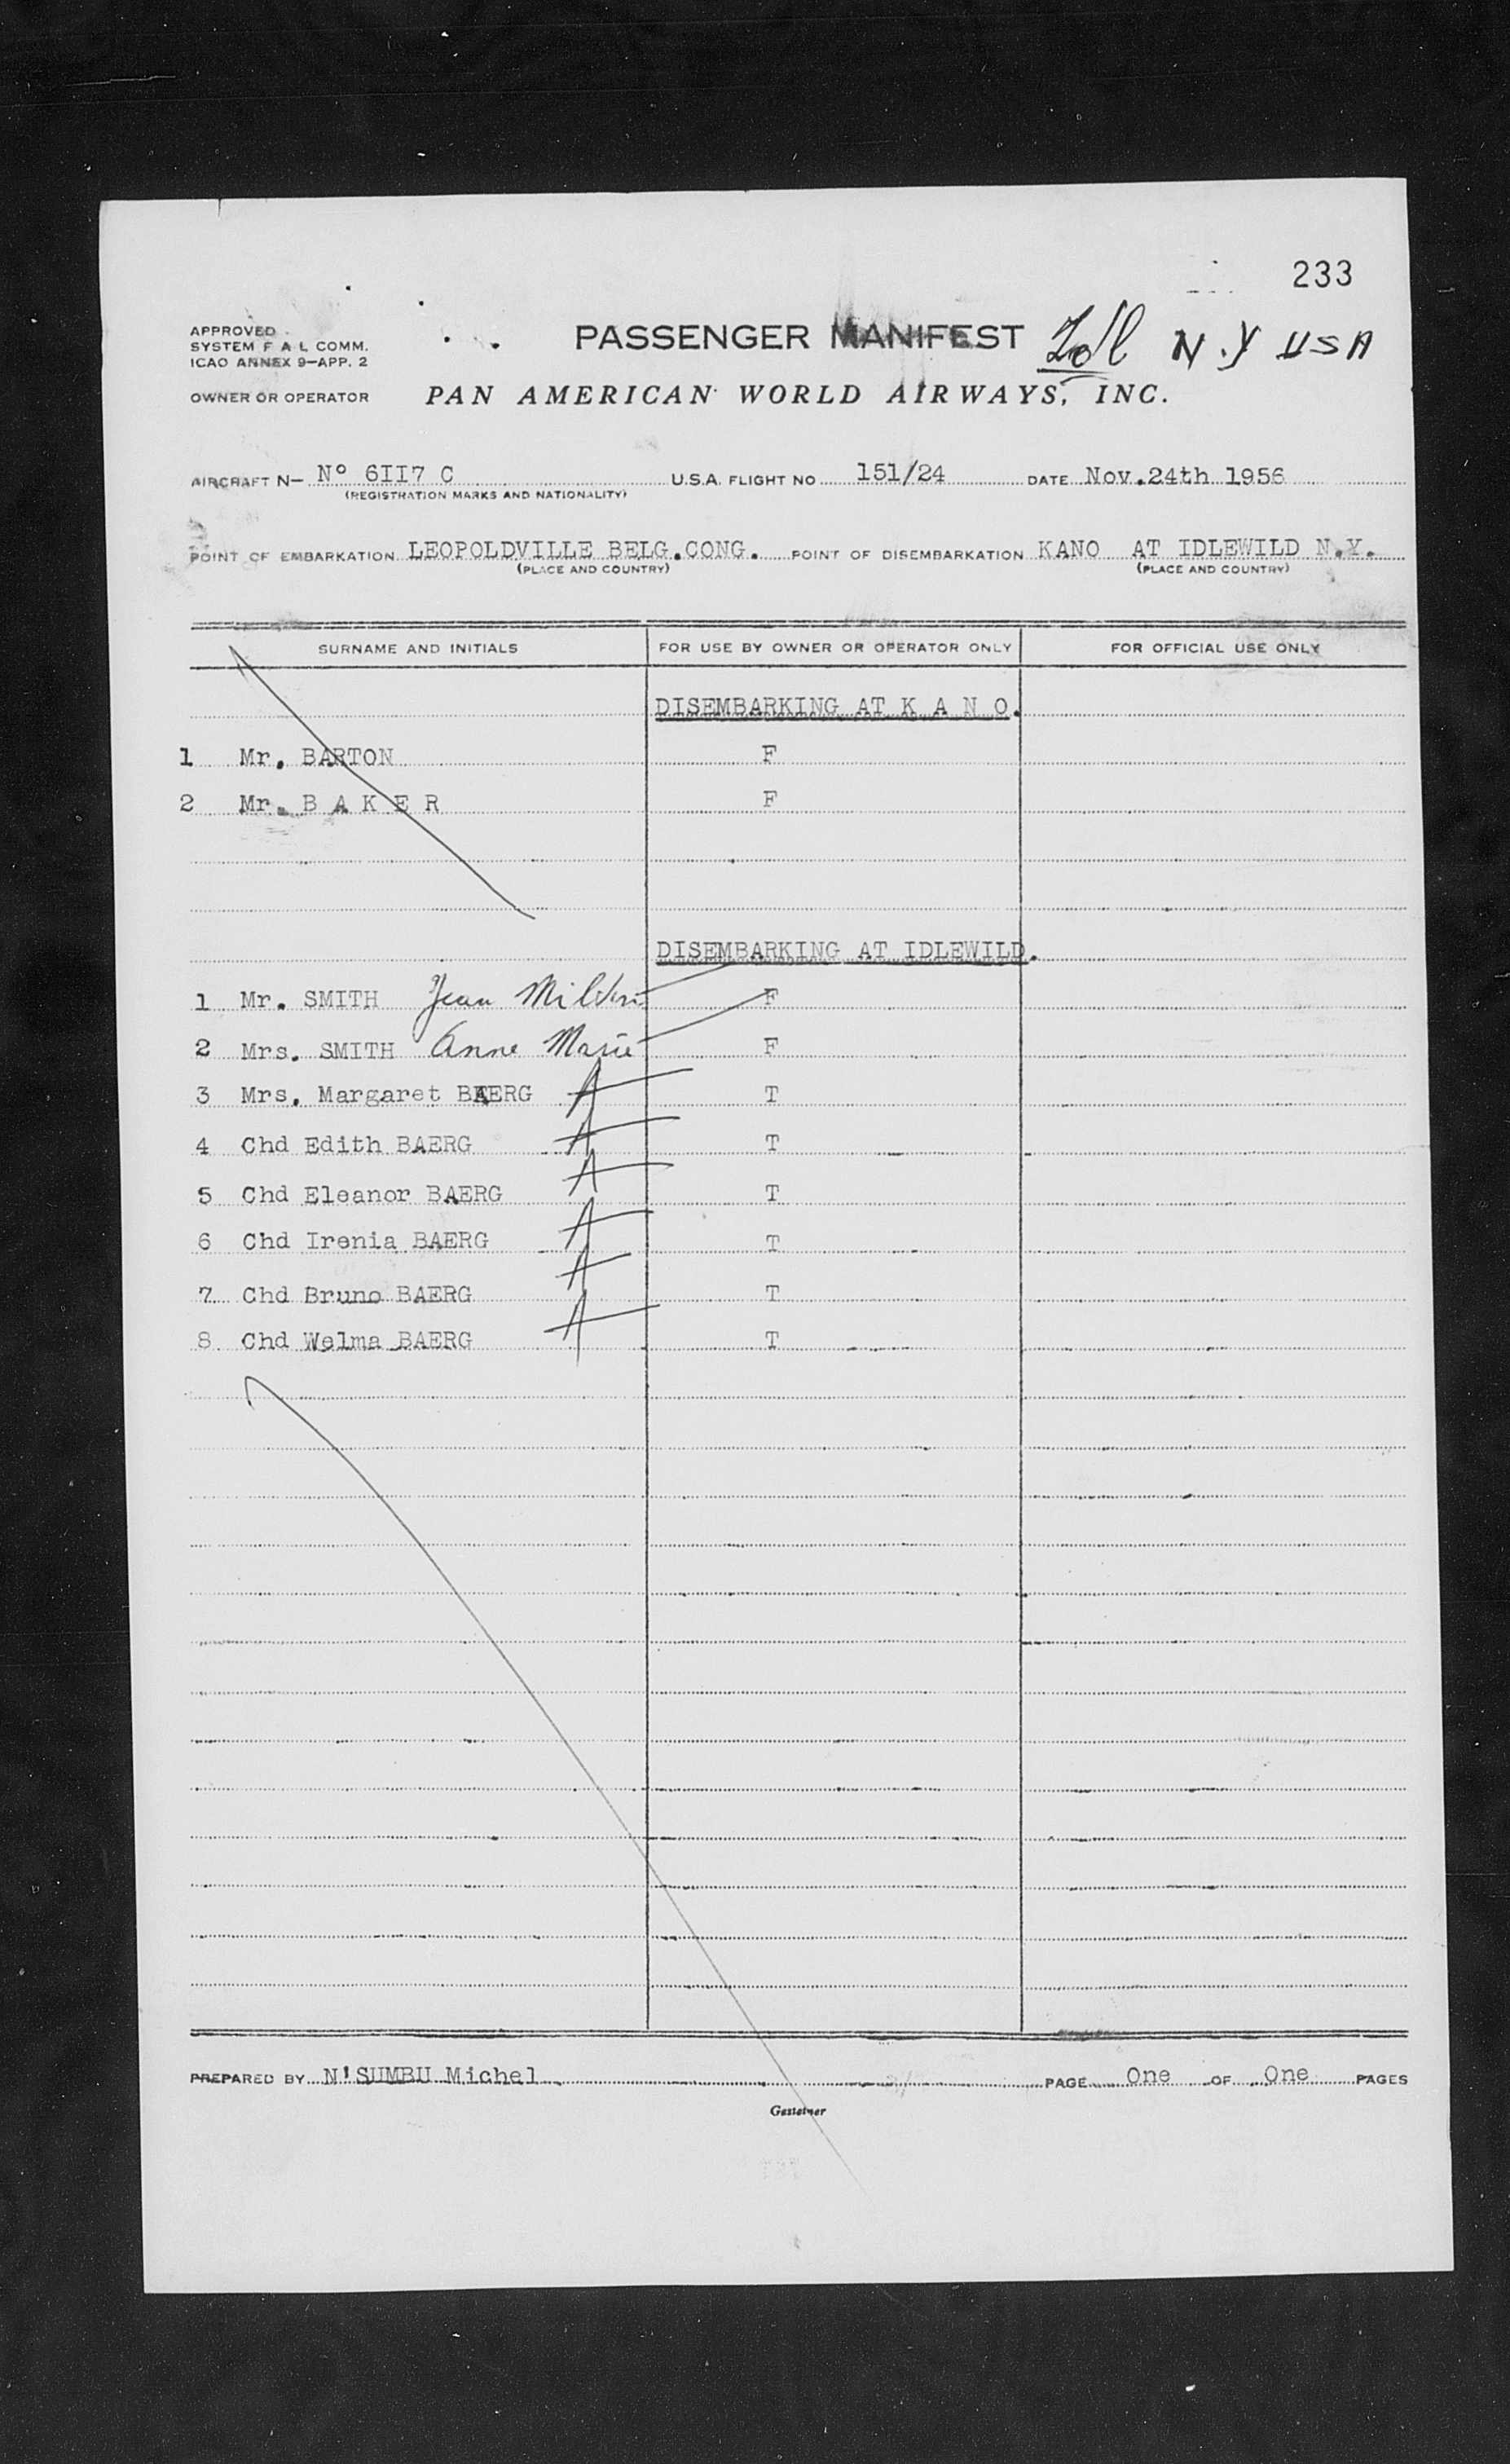 233
APPROVED
SYSTEM F A L COMM.
ICAO ANNEX 9—APP. 2
PASSENGER MANIFEST Idl N.Y USA
OWNER OR OPERATOR PAN AMERICAN WORLD AIRWAYS, INC.
AIRCRAFT N— Nº 6II7 C U.S.A. FLIGHT NO 151/24 DATE Nov.24th 1956
(REGISTRATION MARKS AND NATIONALITY)
POINT OF EMBARKATION LEOPOLDVILLE BELG.CONG. POINT OF DISEMBARKATION KANO AT IDLEWILD N.Y.
(PLACE AND COUNTRY) (PLACE AND COUNTRY)
SURNAME AND INITIALS FOR USE BY OWNER OR OPERATOR ONLY FOR OFFICIAL USE ONLY
DISEMBARKING AT K A N O.
1 Mr. BARTON F
2 Mr. B A K E R F
DISEMBARKING AT IDLEWILD.
1 Mr. SMITH Jean F
2 Mrs. SMITH Anne Marie F
3 Mrs. Margaret BAERG A T
4 Chd Edith BAERG A T
5 Chd Eleanor BAERG A T
6 Chd Irenia BAERG A T
7 Chd Bruno BAERG A T
8 Chd Welma BAERG A T
PREPARED BY N'SUMBU Michel PAGE One OF One PAGES
Gestetner